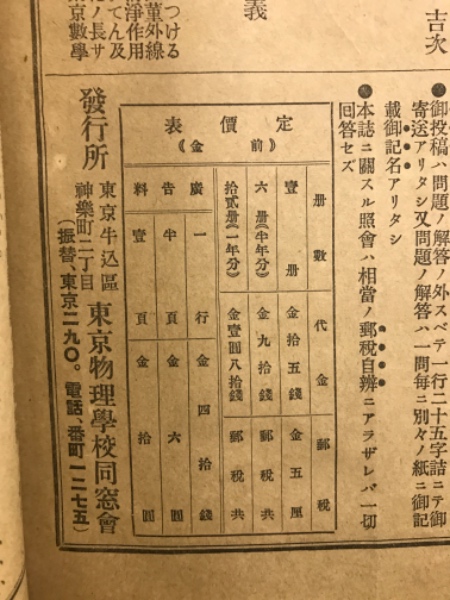 義
吉次
つける
菫外線
淨作用
てん及
ノ長サ
京數學
●御投稿ハ問題ノ解答ノ外スベテ一行二十五字詰ニテ御
寄送アリタシ又問題ノ解答ハ一問每ニ別々ノ紙ニ御記
載御記名アリタシ
●本誌ニ關スル照會ハ相當ノ郵稅自辨ニアラザレバ一切
回答セズ
定價表
(前金)
册數 代金 郵稅
壹册 金拾五錢 金五厘
六册(半年分) 金九拾錢 郵稅共
拾貳册(一年分) 金壹圓八拾錢 郵稅共
廣告料
一行 金四拾錢
半頁 金六圓
壹頁 金拾圓
發行所
東京牛込區
神樂町二丁目
東京物理學校同窓會
(振替、東京二九〇。電話、番町一二七五)